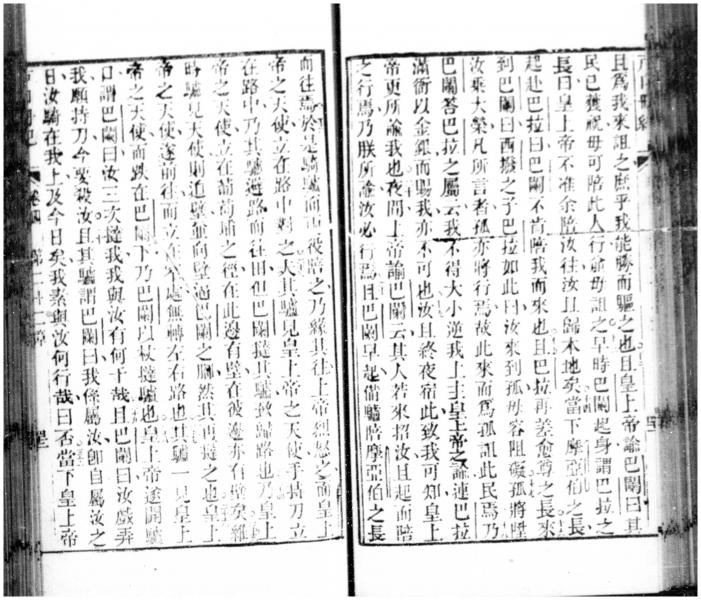 且爲我來詛之庶乎我能勝而驅之也且皇上帝諭巴闌曰其
民已獲祝毋可陪此人行爾毋詛之早時巴闌起身謂巴拉之
長曰皇上帝不准余陪汝往汝且歸本地矣當下摩亞伯之長
起赴巴拉曰巴闌不肯陪我而來也且巴拉再差愈尊之長來
到巴闌曰西撥之子巴拉如此曰汝來到孤毋容阻礙孤將陞
汝乘大榮凡所言者孤亦將行焉故此來而爲孤詛此民焉乃
巴闌答巴拉之屬云我不得大小逆我上主皇上帝之諭連巴拉
滿衙以金銀而賜我亦不可也汝且終夜宿此致我可知皇上
帝更所諭我也夜間上帝諭巴闌云其人若來招汝且起而陪
之行焉乃朕所諭汝必行焉且巴闌早起備驢陪摩亞伯之長
而往焉於是騎驢而
帝之天使立在路中對之夫其驢見皇上帝之天使手持刀立
在路中乃其驢避路而往田但巴闌撻其驢致歸路也乃皇上
帝之天使立在葡萄埔之徑在此邊有壁在彼邊亦有壁矣雖
時驢見天使則迫壁並向壁逼巴闌之腳然其再撻之也皇上
帝之天使遂前往而立在窄處無轉左右路也其驢一見皇上
帝之天使而跌在巴闌下乃巴闌以杖撻驢也皇上帝遂開驢
口謂巴闌曰汝三次撻我我與汝有何干哉且巴闌曰汝戲弄
我願持刀今要殺汝且其驢謂巴闌曰我係屬汝卽自屬汝之
日汝騎在我上及今日矣我素與汝何行哉曰否當下皇上帝
卷四 第二十二章